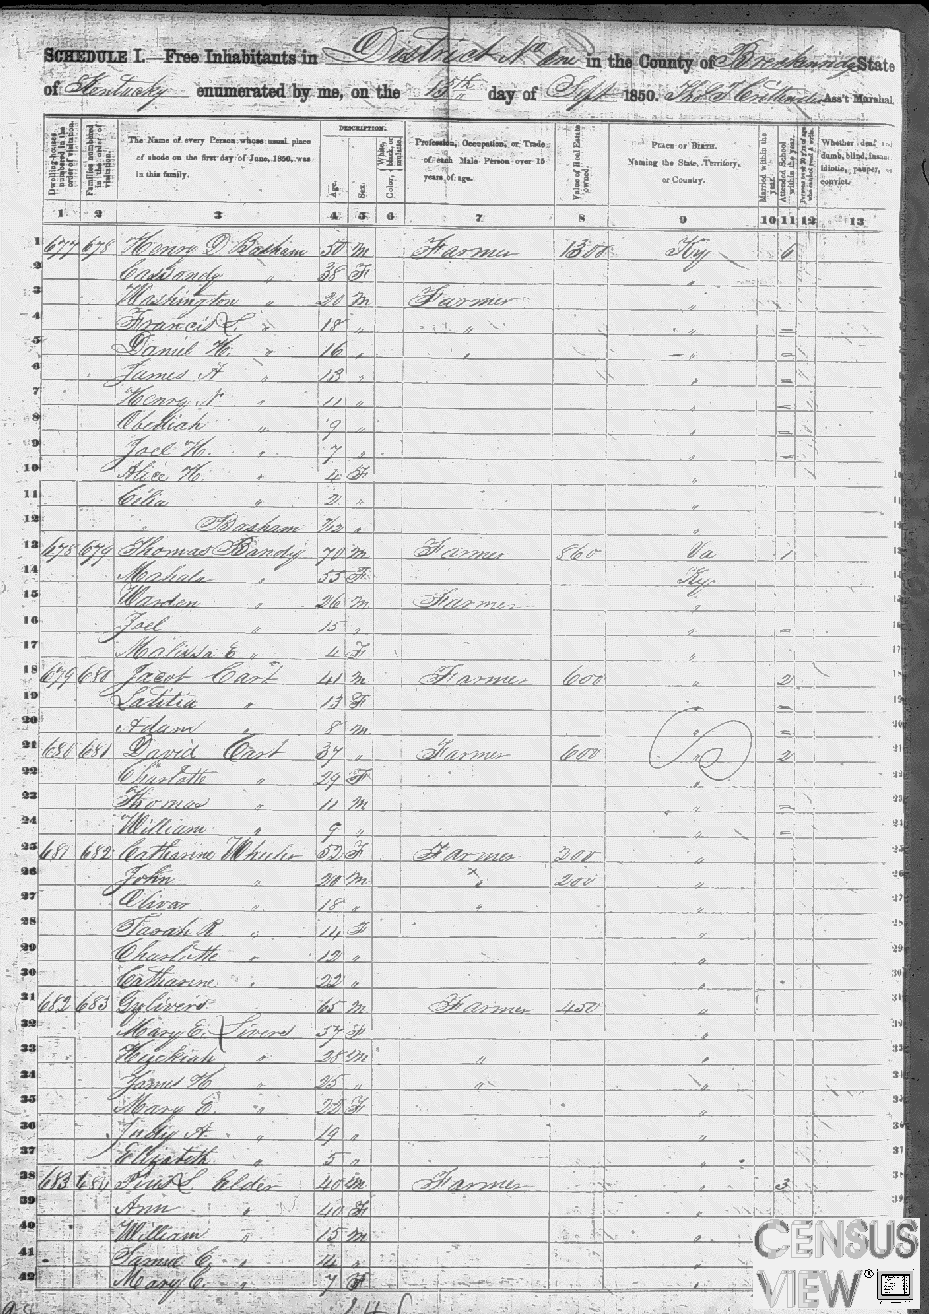 SCHEDULE I.—Free Inhabitants in District No One in the County of Breckenridge State
of Kentucky enumerated by me, on the 15th day of Sept 1850. Ass't Marshal.
Dwelling-houses numbered in the order of visitation.
Families numbered in the order of visitation.
The Name of every Person whose usual place of abode on the first day of June, 1850, was in this family.
DESCRIPTION.
Age.
Sex.
Color, White, black, or mulatto.
Profession, Occupation, or Trade of each Male Person over 15 years of age.
Value of Real Estate owned.
PLACE OF BIRTH. Naming the State, Territory, or Country.
Married within the year.
Attended School within the year.
Whether deaf and dumb, blind, insane, idiotic, pauper, or convict.
1 2 3 4 5 6 7 8 9 10 11 12 13
1 677 678 Henry D Basham 50 m Farmer 1300 Ky 6
2 Cassandy " 38 F "
3 Washington " 20 m Farmer "
4 Francis L " 18 " " "
5 Daniel H. " 16 " " "
6 James A " 13 " "
7 Henry N " 11 " "
8 Obediah " 9 " "
9 Joel H. " 7 " "
10 Alice H. " 4 F "
11 Celia " 2 " "
12 " Basham "
13 678 679 Thomas Bandy 70 m Farmer 860 Va 1
14 Mahala " 55 F Ky
15 Warden " 26 m Farmer "
16 Joel " 15 " "
17 Malissa E " 4 F "
18 679 680 Jacob Cart 41 m Farmer 600 " 2
19 Latitia " 13 F "
20 Adam " 8 m "
21 680 681 David Cart 37 " Farmer 600 " 2
22 Charlotte " 29 F "
23 Thomas " 11 m "
24 William " 9 " "
25 681 682 Catharine Wheeler 52 F Farmer 300 "
26 John " 20 m " 200 "
27 Olivar " 18 " " "
28 Sarah R " 14 F "
29 Charlotte " 12 " "
30 Catharine " 22 " "
31 682 683 65 m Farmer 450 "
32 Mary E. Livers 57 F "
33 " 28 m " "
34 James H " 25 " " "
35 Mary E. " F "
36 Judy A. " 19 " "
37 Elizabeth " 5 " "
38 683 684 Pius L Elder 40 m Farmer " 3
39 Ann " 40 F "
40 William " 15 m "
41 Samuel C. " "
42 Mary C. " 7 F "
CENSUS
VIEW